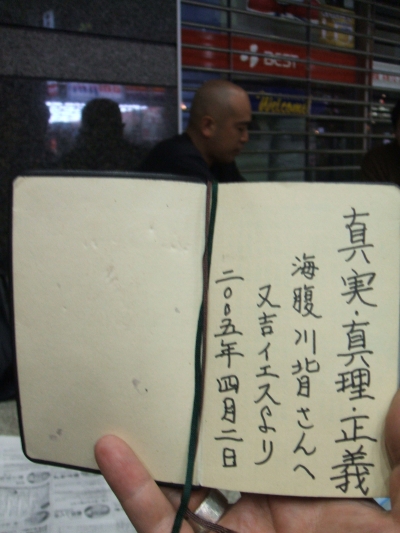 真実・真理・正義
海腹川背さんへ
又吉イエスより
二〇〇五年四月二日
BEST
Welcome